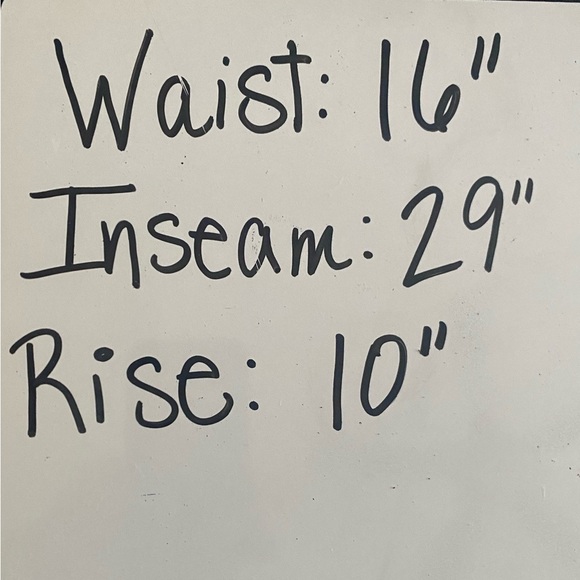 Waist: 16"
Inseam: 29"
Rise: 10"